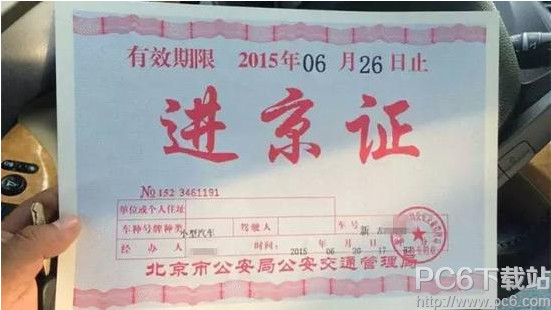 有效期限 2015年06月26日止
进京证
№152 3461191
单位或个人住址
车种号牌种类 小型汽车 驾驶人 车号 新
经办人 时间: 2015年06月20 17
北京市公安局公安交通管理局
PC6下载站
http://www.pc6.com